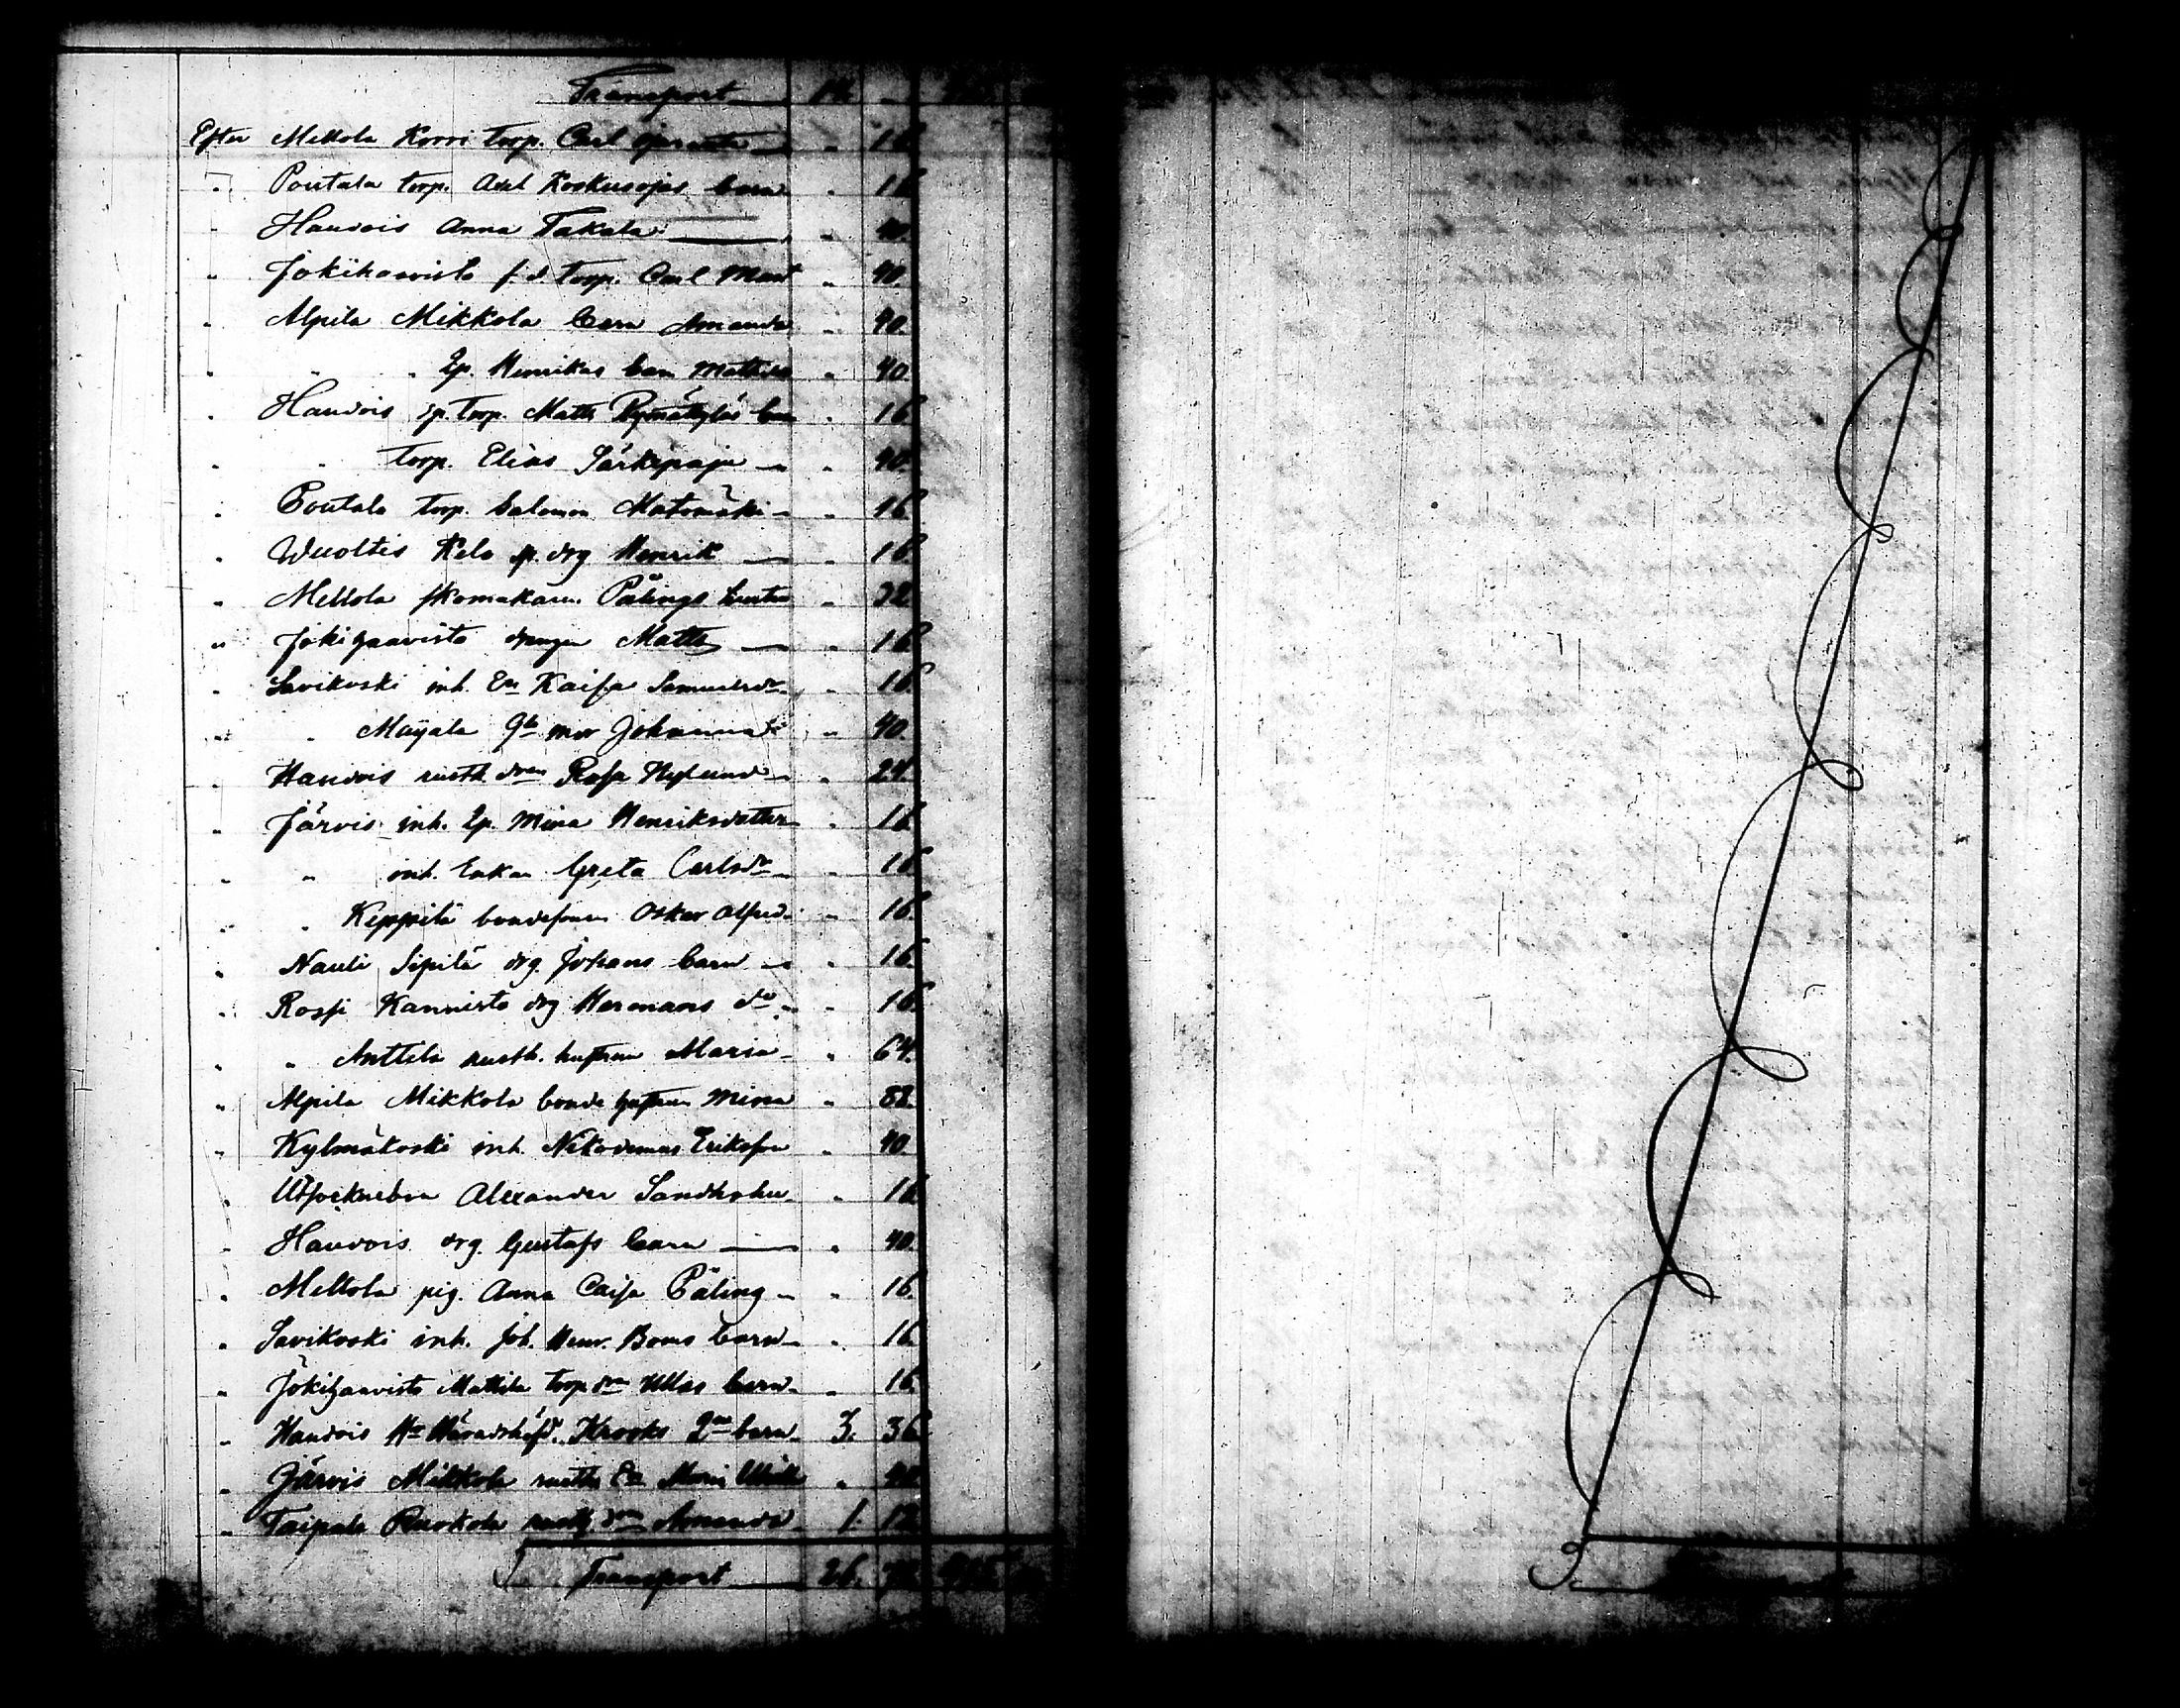 Transport — 14. -
Efter Mellola Korri torp. Carl — " 16
" Poutala torp. Axel Koskusojas barn " 16
" Handois Anna Takala — " 40.
" Jokihaavisto f.d. torp. Carl Matt " 40.
" Alpila Mikkola barn Amanda " 40
" " " Ep. Henrikas barn Mathilda " 40.
" Handois ep. torp. Matts Rymättyläs barn " 16
" " torp. Elias Särkipaju — " 40.
" Poutala torp. Salomon Matomäki — " 16
" Wuoltis Kela ep. drg Henrik — " 16.
" Mellola skomakaren Pålings hustru " 32
" Jokihaavisto drengen Matts — " 16
" Savikoski inh. En Kaisa Samuelsdr " 16.
" " Mäyälä gb. mor Johanna " 40
" Handois rusth. dren Rosa Nylund — " 24.
" Järvis inh. Ep. Mina Henriksdotter " 16
" " inh. Enkan Greta Carlsdr — " 16
" " Keppilä bondesonen Oskar Alfred — " 16.
" Nauli Sipilä drg. Johans barn — " 16.
" Rossi Kannisto drg Hermans do — " 16.
" " Anttila rusth. hustrun Maria — " 64.
" Alpila Mikkola bonde hustrun Mina " 88.
" Kylmäkoski inh. Nikodemus Eriksson " 40
" Utsocknebon Alexander Sandholm — " 16
" Handois drg. Gustafs barn — " 40.
" Mellola pig. Anna Caisa Påling — " 16.
" Savikoski inh. Joh. Henr. Boms barn — " 16.
" Jokihaavisto Mattila torp. drn Ullas barn — " 16.
" Handois Hr Häradshöfd. Krooks 2ne barn — 3. 36
" Järvis Mikkola rusth. En Maria " 40
" Taipale Ruokola rusth. drn Amanda — 1. 12
Transport — 26. 72.